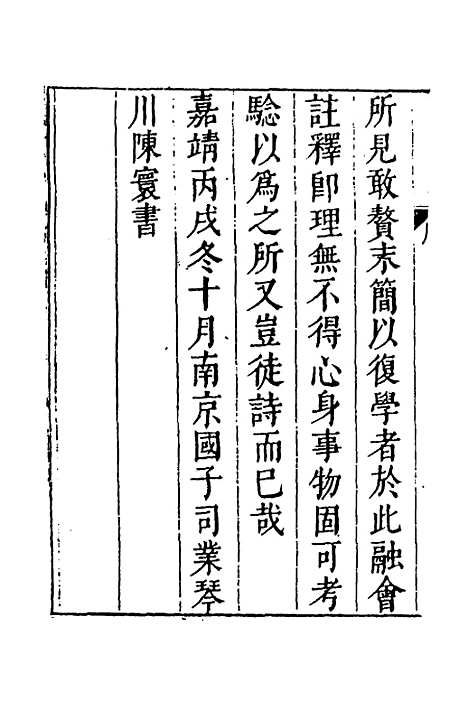 所見敢贅末簡以復學者於此融會
註釋卽理無不得心身事物固可考
驗以爲之所又豈徒詩而已哉
嘉靖丙戌冬十月南京國子司業琴
川陳寰書